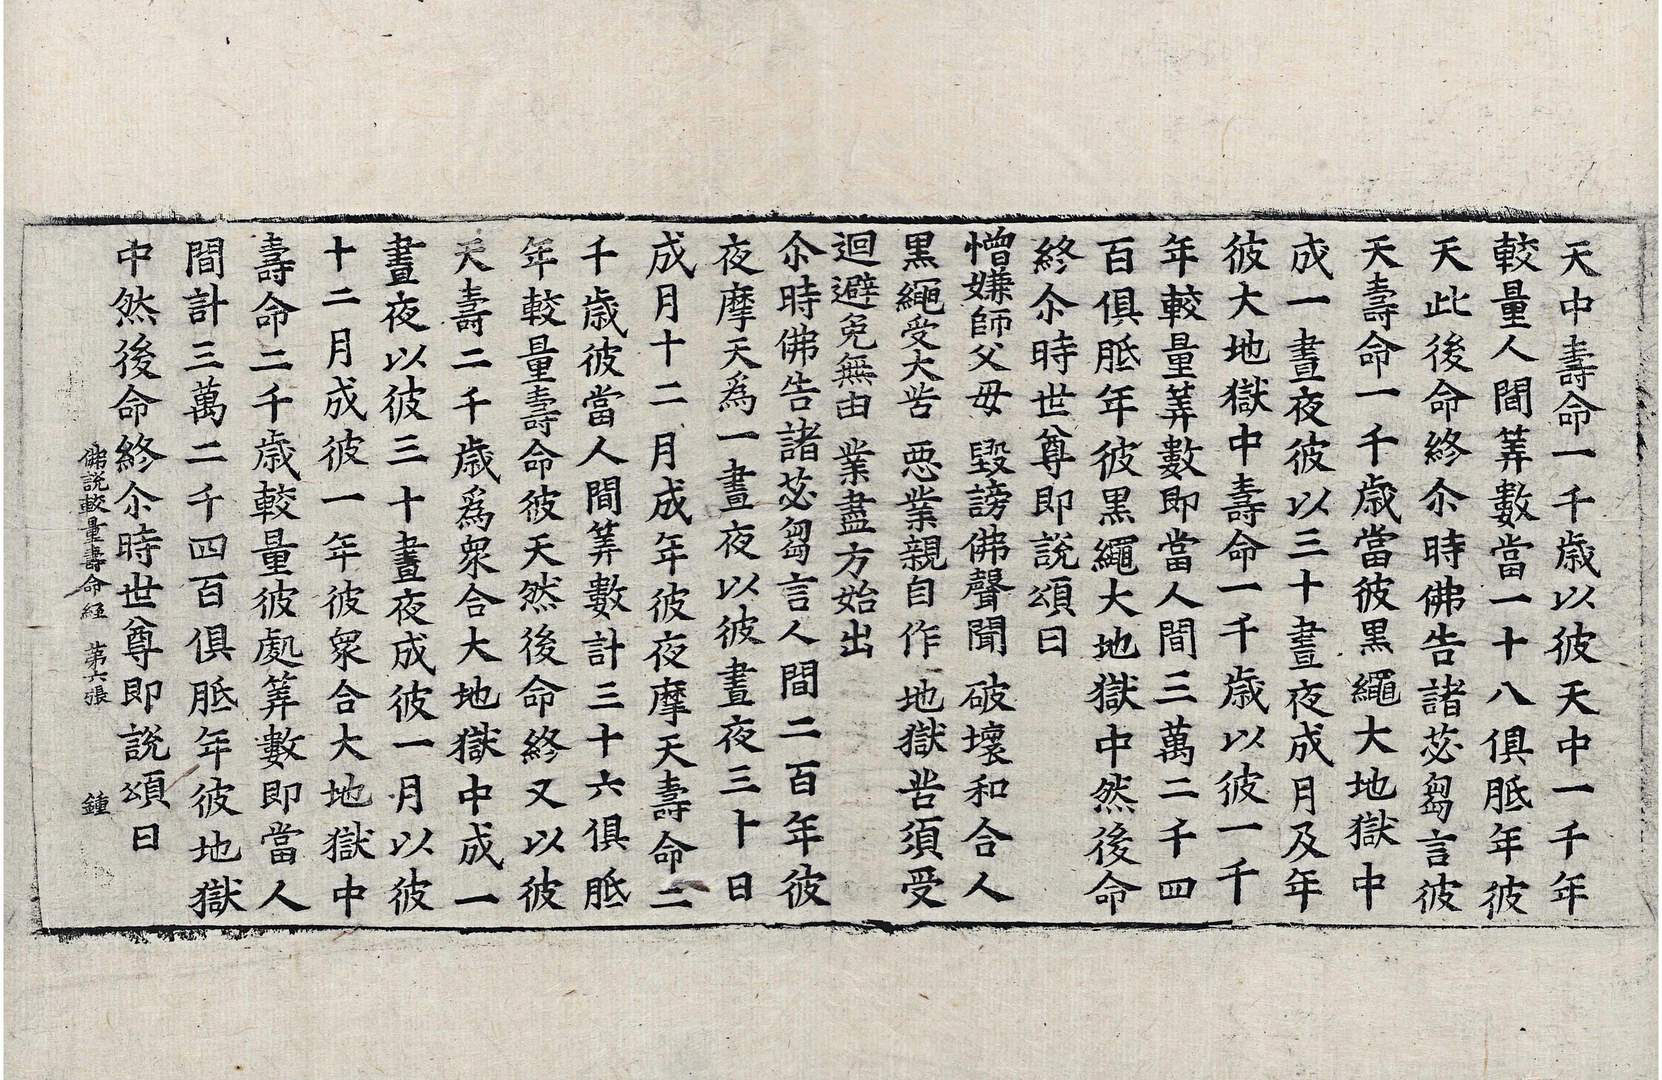 天中壽命一千歲以彼天中一千年
較量人間筭數當一十八俱胝年彼
天此後命終尒時佛告諸苾芻言彼
天壽命一千歲當彼黒繩大地獄中
成一晝夜彼以三十晝夜成月及年
彼大地獄中壽命一千歲以彼一千
年較量筭數即當人間三萬二千四
百俱胝年彼黒繩大地獄中然後命
終尒時世尊即說頌曰
憎嫌師父母 毀謗佛聲聞 破壞和合人
黒繩受大苦 惡業親自作 地獄苦須受
迴避免無由 業盡方始出
尒時佛告諸苾芻言人間二百年彼
夜摩天為一晝夜以彼晝夜三十日
成月十二月成年彼夜摩天壽命二
千歲彼當人間筭數計三十六俱胝
年較量壽命彼天然後命終又以彼
天壽二千歲爲衆合大地獄中成一
晝夜以彼三十晝夜成彼一月以彼
十二月成彼一年彼衆合大地獄中
壽命二千歲較量彼處筭數即當人
間計三萬二千四百俱胝年彼地獄
中然後命終尒時世尊即說頌曰
佛說較量壽命經 第六張 鍾